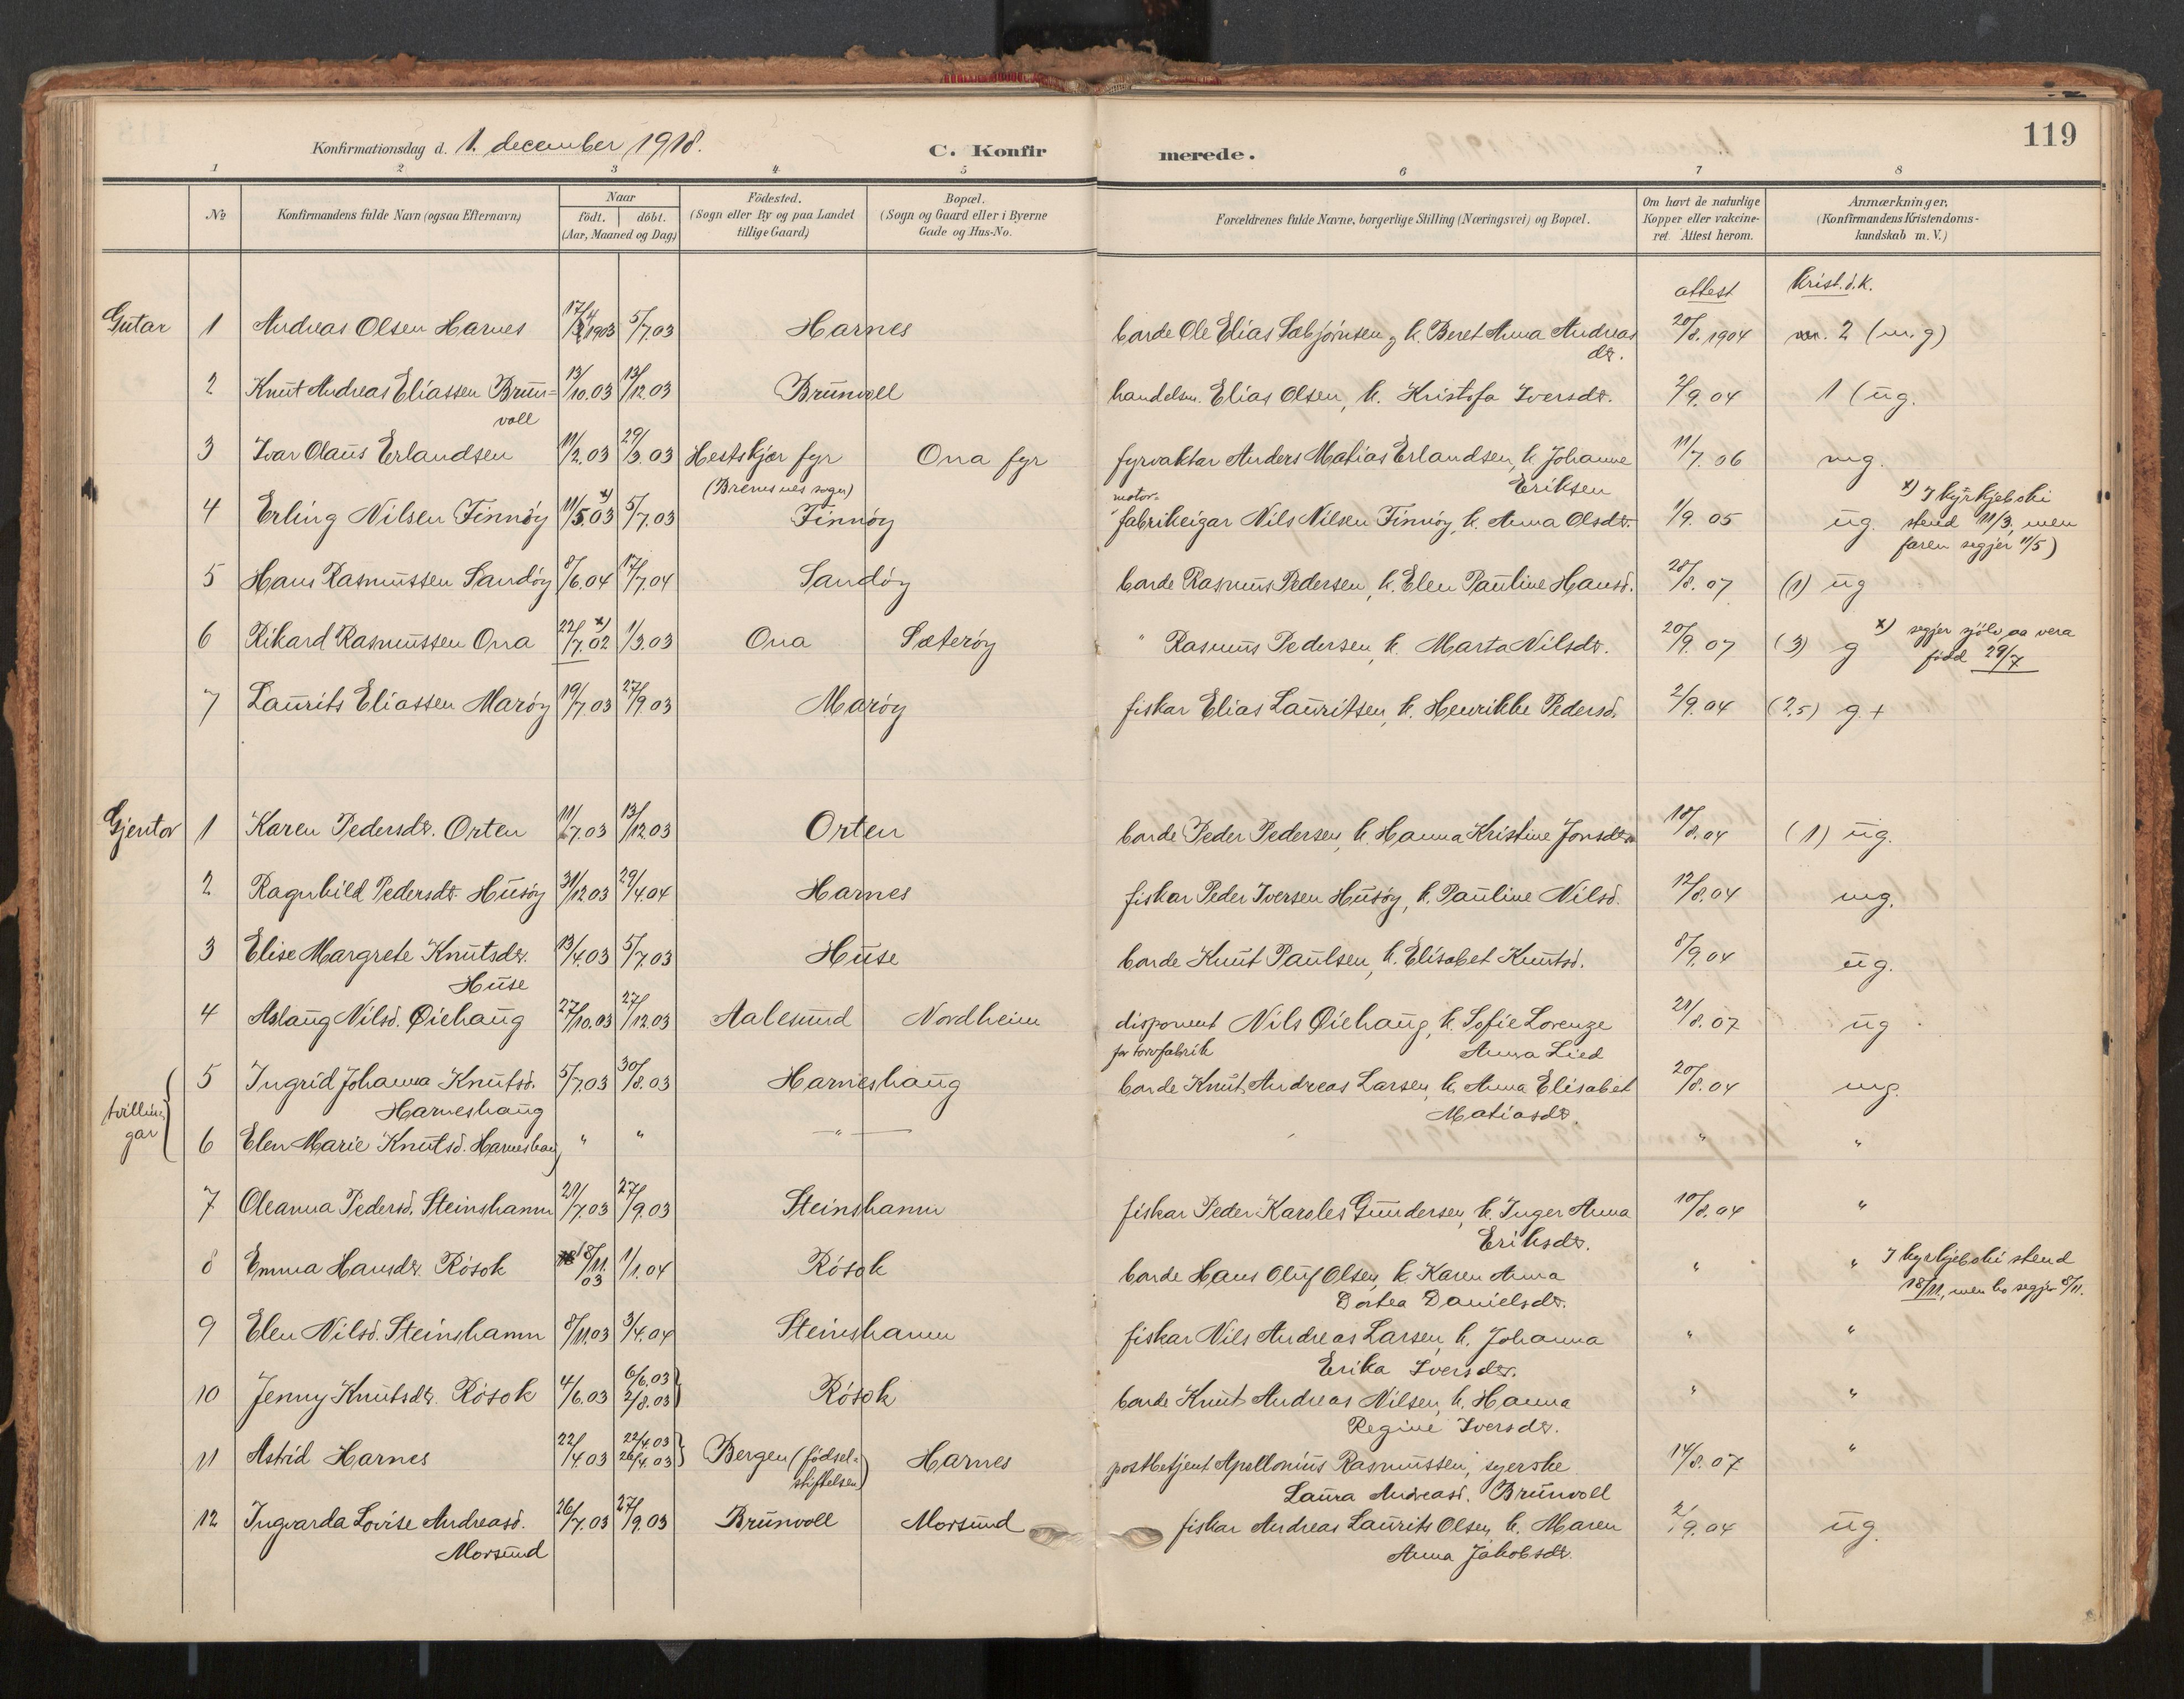 119
Konfirmationsdag d. 1. december 1918. C. Konfirmerede.
1 2 3 4 5 6 7 8
№ Konfirmandens fulde Navn (ogsaa Efternavn) Naar födt. döbt. (Aar, Maaned og Dag) Födested. (Sogn eller By og paa Landet tillige Gaard) Bopæl. (Sogn og Gaard eller i Byerne Gade og Hus-No. Forældrenes fulde Navne, borgerlige Stilling (Næringsvei) og Bopæl. Om havt de naturlige Kopper eller vakcineret Attest herom. Anmærkninger. (Konfirmandens Kristendomskundskab m. V.)
attest Krist.d.k.
Gutar 1 Andreas Olsen Harnes 17/4 1903 5/7.03 Harnes borde Ole Elias Sæbjørnsen, k. Beret Anna Andreas 20/8.1904 2 (m.g)
dr.
2 Knut Andreas Eliassen Brun= 13/10.03 13/12.03 Brunvoll handelsm. Elias Olsen, k. Kristofa Iversdr. 2/9.04 1 (ug.
voll
3 Ivar Olaus Erlandsen 11/2.03 29/3.03 Hestskjær fyr Ona fyr fyrvaktar Anders Matias Erlandsen, k. Johanne 11/7.06 mg.
(Bremsnes sogn) Eriksen
motor-
4 Erling Nilsen Finnøy 11/5.03 x) 5/7.03 Finnøy fabrikeigar Nils Nilsen Finnøy, k. Anna Olsdr. 1/9.05 ug. x) I kyrkjeboki
stend 11/3, men
faren segjer 11/5)
5 Hans Rasmussen Sandøy 8/6.04 17/7.04 Sandøy borde Rasmus Pedersen, k. Elen Pauline Hansd. 28/8.07 (1) ug
6 Rikard Rasmussen Ona 22/7.02 x) 1/3.03 Ona Sæterøy " Rasmus Pedersen, k. Marta Nilsdr. 20/9.07 (3) g x) segjer sjölv aa vera
född 29/7
7 Laurits Eliassen Marøy 19/7.03 27/9.03 Marøy fiskar Elias Lauritsen, k. Henrikke Pedersd. 2/9.04 (2,5) g +
Gjentor 1 Karen Pedersdr. Orten 11/7.03 13/12.03 Orten borde Peder Pedersen, k. Hanna Kristine Jonsdr. 18/8.04 (1) ug.
2 Ragnhild Pedersdr. Husøy 31/12.03 29/4.04 Harnes fiskar Peder Iversen Husøy, k. Pauline Nilsd. 12/8.04 mg.
3 Elise Margrete Knutsdr. 13/4.03 5/7.03 Huse borde Knut Paulsen, k. Elisabet Knutsd. 8/9.04 ug.
Huse
4 Aslaug Nilsd. Øiehaug 27/10.03 27/12.03 Aalesund Nordheim disponent Nils Øiehaug, k. Sofie Lorenze 21/8.07 ug
for torvfabrik Anna Lied
5 Ingrid Johanna Knutsd. 5/7.03 30/8.03 Harneshaug borde Knut Andreas Larsen, k. Anna Elisabet 20/8.04 mg.
Harneshaug Matiasdr.
tvillin-
gar
6 Elen Marie Knutsd. Harneshaug " " — " — " "
7 Oleanna Pedersd. Steinshamn 21/7.03 27/9.03 Steinshamn fiskar Peder Karoles Gundersen, k. Inger Anna 10/8.04 "
Eriksdr.
8 Emma Hansdr. Røsok 18/11 03 1/1.04 Røsok borde Hans Oluf Olsen, k. Karen Anna " " I kyrkjeboki stend
Dortea Danielsdr. 18/11, men ho segjer 8/11.
9 Elen Nilsd. Steinshamn 8/11.03 3/4.04 Steinshamn fiskar Nils Andreas Larsen, k. Johanna " "
Erika Iversdr.
10 Jenny Knutsdr. Røsok 4/6.03 6/6.03 2/8.03 Røsok borde Knut Andreas Nilsen, k. Hanna " "
Regine Iversdr.
11 Astrid Harnes 22/4.03 22/4.03 26/4.03 Bergen (födsel= Harnes postbetjent Apollonius Rasmussen, syerske 14/8.07 "
stiftelsen) Laura Andreasd. Brunvoll
12 Ingvarda Lovise Andreasd. 26/7.03 27/9.03 Brunvoll Morsund fiskar Andreas Laurits Olsen, k. Maren 2/9.04 ug.
Morsund Anna Jakobsdr.